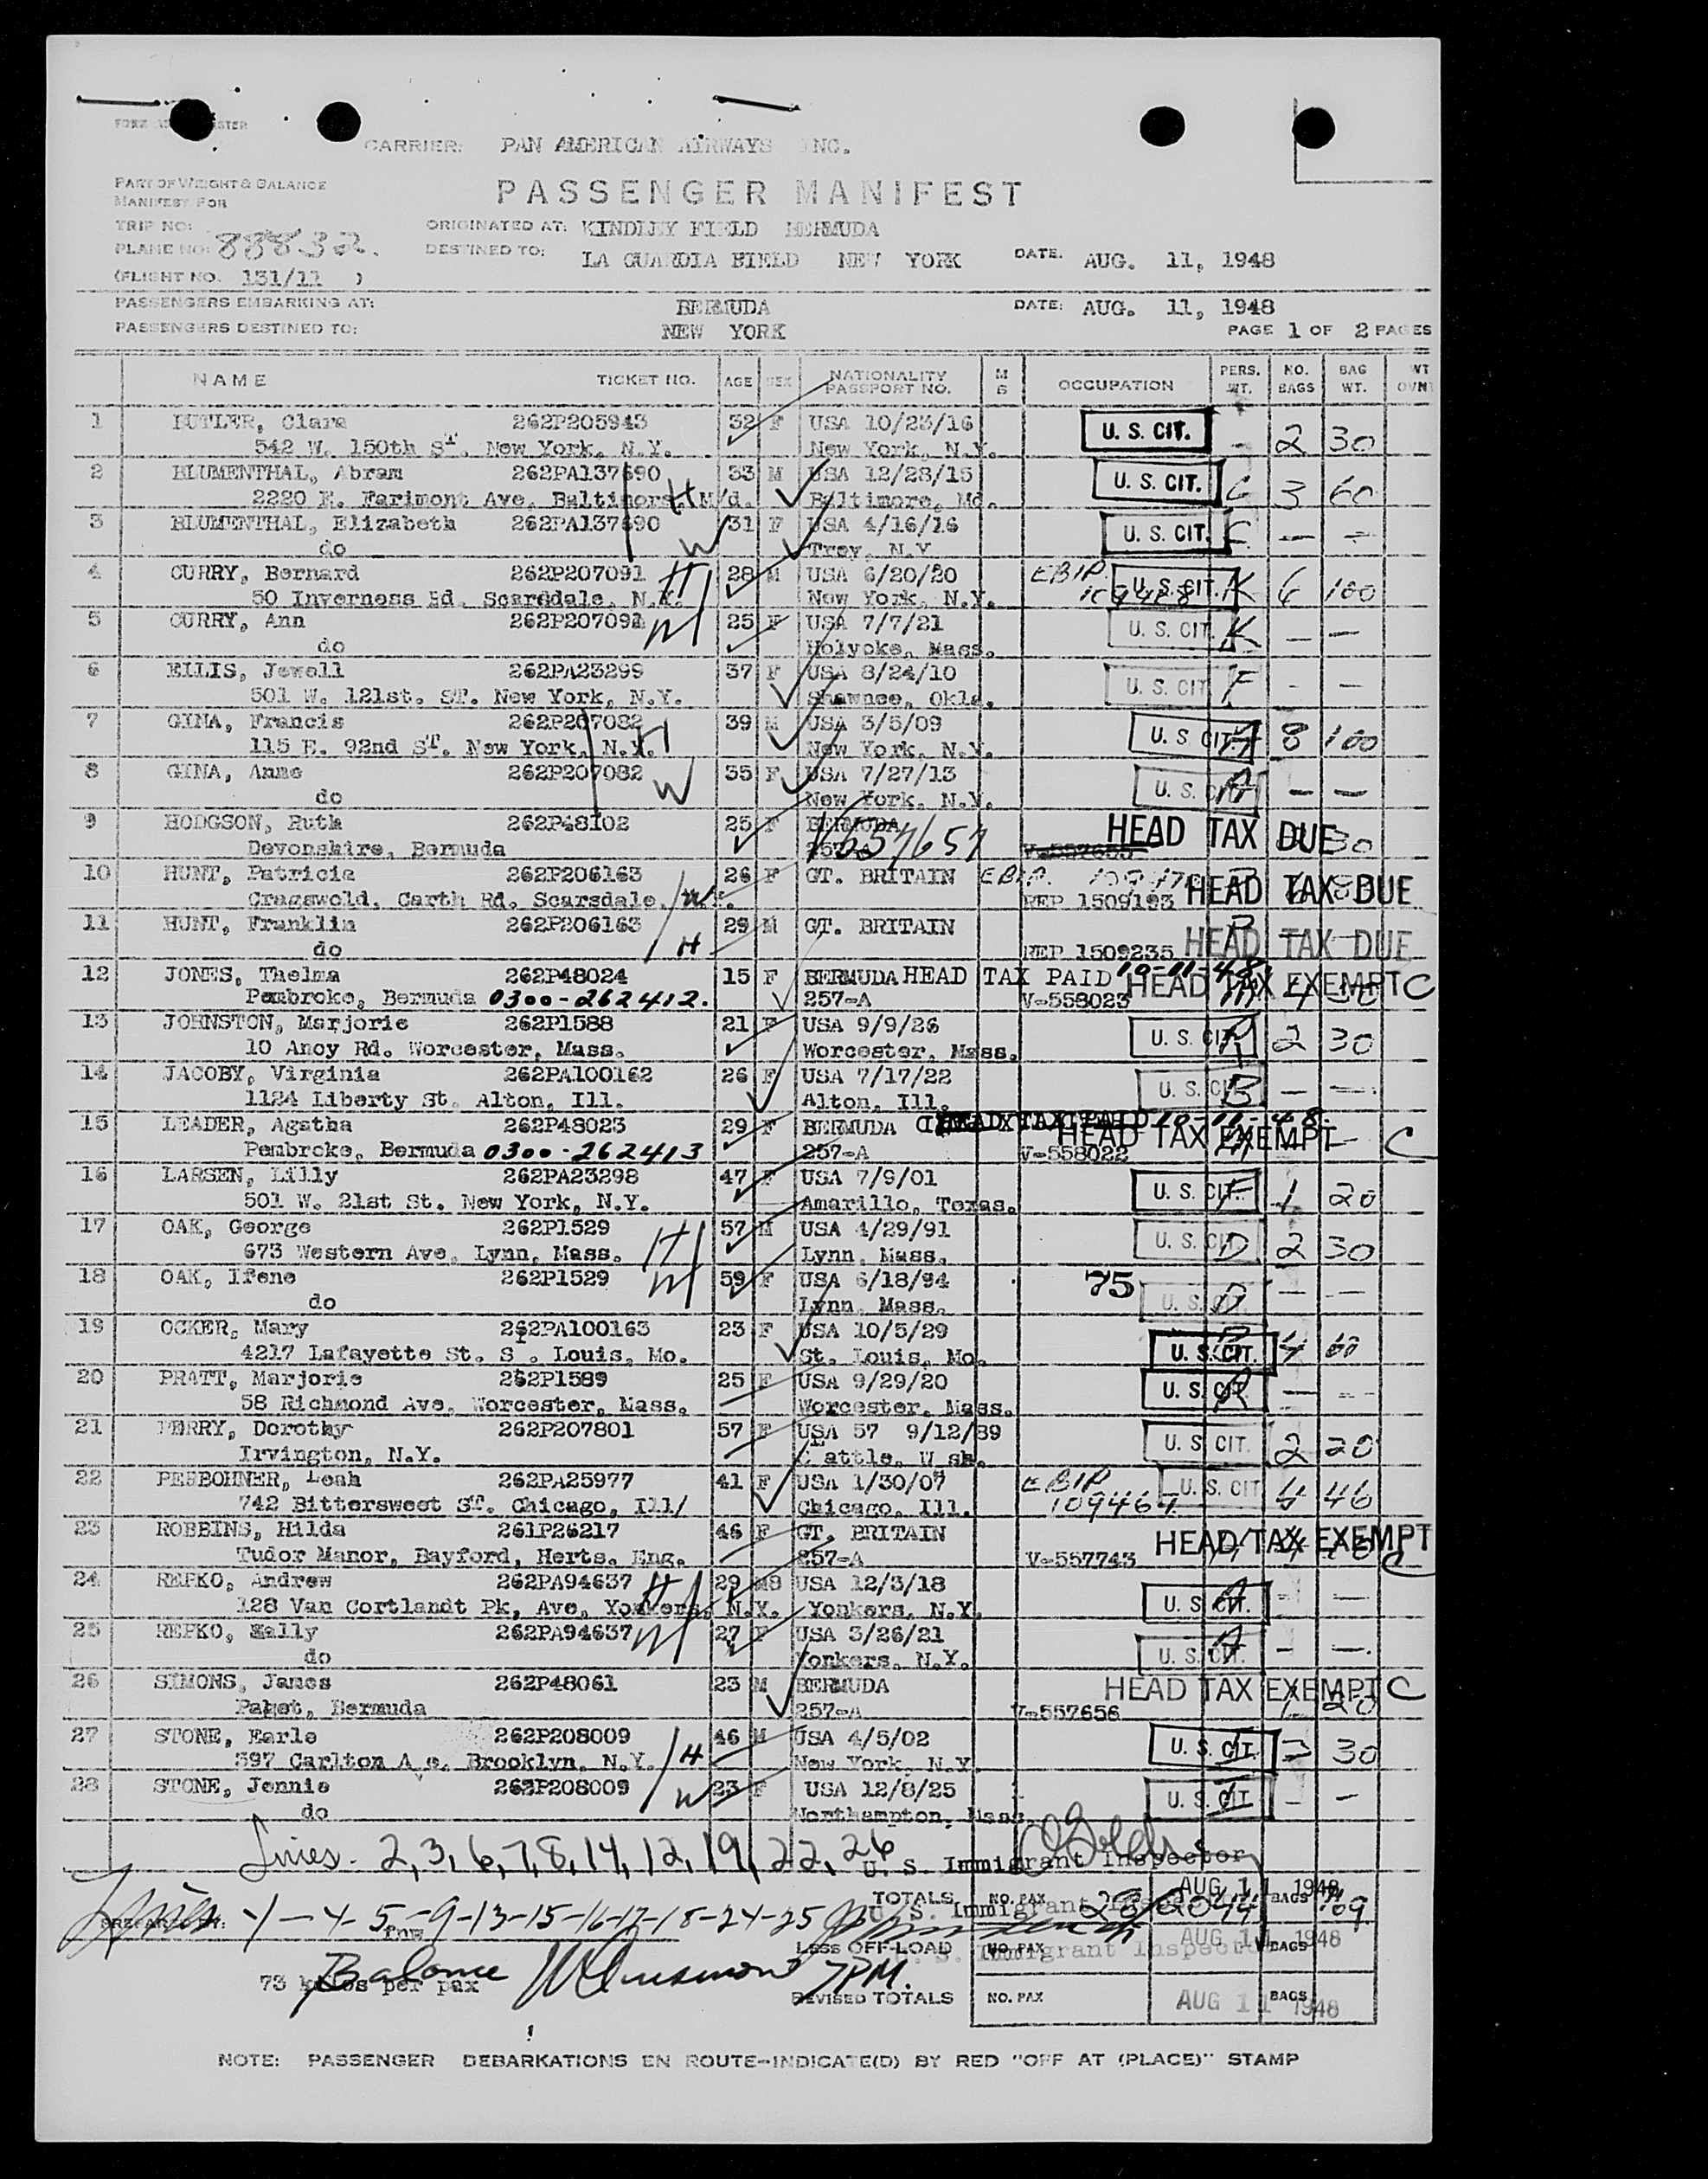 CARRIER: PAN AMERICAN AIRWAYS INC.
PART OF WEIGHT & BALANCE
MANIFEST FOR
PASSENGER MANIFEST
TRIP NO:
ORIGINATED AT: KINDLEY FIELD BERMUDA
PLANE NO: 88832.
DESTINED TO: LA GUARDIA FIELD NEW YORK DATE: AUG. 11, 1948
(FLIGHT NO. 131/11 )
PASSENGERS EMBARKING AT: BERMUDA DATE: AUG. 11, 1948
PASSENGERS DESTINED TO: NEW YORK PAGE 1 OF 2 PAGES
NAME TICKET NO. AGE SEX NATIONALITY PASSPORT NO. M S OCCUPATION PERS. WT. NO. BAGS BAG WT. WT
1 BUTLER, Clara 262P205943 32 F USA 10/23/16 U. S. CIT. - 2 30
542 W. 150th ST. New York, N.Y. New York, N.Y.
2 BLUMENTHAL, Abram 262PA137690 33 M USA 12/28/15 U. S. CIT. C 3 60
2220 E. Farimont Ave. Baltimore, M'd. H Baltimore, Md.
3 BLUMENTHAL, Elizabeth 262PA137690 W 31 F USA 4/16/16 U. S. CIT. C — —
do Troy, N.Y
4 CURRY, Bernard 262P207091 H 28 M USA 6/20/20 EBIP U. S. CIT. K 6 100
50 Inverness Rd. Scarddale, N.Y. New York, N.Y.
5 CURRY, Ann 262P207091 W 25 F USA 7/7/21 U. S. CIT. K — —
do Holyoke, Mass.
6 ELLIS, Jewell 262PA23299 37 F USA 8/24/10 U. S. CIT F - —
501 W. 121st. ST. New York, N.Y. Shawnee, Okla.
7 GINA, Francis 262P207082 H 39 M USA 3/5/09 U. S CIT. A 8 100
115 E. 92nd ST. New York, N.Y. New York, N.Y.
8 GINA, Anne 262P207082 W 35 F USA 7/27/13 U. S. CIT A — —
do New York, N.Y.
9 HODGSON, Ruth 262P48102 25 F BERMUDA HEAD TAX DUE 30
Devonshire, Bermuda 257-A V557657
10 HUNT, Patricia 262P206163 26 F GT. BRITAIN EBIP. HEAD TAX DUE
Cragswold, Garth Rd. Scarsdale, W REP 1509193
11 HUNT, Franklin 262P206163 29 M GT. BRITAIN B HEAD TAX DUE
do H REP 1509235
12 JONES, Thelma 262P48024 15 F BERMUDA HEAD TAX PAID 10-11-48 HEAD TAX EXEMPT C
Pembroke, Bermuda 0300-262412. 257-A V-558023
13 JOHNSTON, Marjorie 262P1588 21 F USA 9/9/26 U. S. CIT. R 2 30
10 Ancy Rd. Worcester, Mass. Worcester, Mass.
14 JACOBY, Virginia 262PA100162 26 F USA 7/17/22 U. S. CIT B — —
1124 Liberty St. Alton, Ill. Alton, Ill.
15 LEADER, Agatha 262P48023 29 F BERMUDA HEAD TAX PAID 10-11-48 HEAD TAX EXEMPT — C
Pembroke, Bermuda 0300-262413 257-A V-558022
16 LARSEN, Lilly 262PA23298 47 F USA 7/9/01 U. S. CIT. F 1 20
501 W. 21st St. New York, N.Y. Amarillo, Texas.
17 OAK, George 262P1529 H 57 M USA 4/29/91 U. S. CIT D 2 30
673 Western Ave. Lynn, Mass. Lynn, Mass.
18 OAK, Irene 262P1529 W 59 F USA 6/18/94 75 U. S. CIT. D — —
do Lynn, Mass.
19 OCKER, Mary 262PA100163 23 F USA 10/5/29 U. S. CIT. B 4 60
4217 Lafayette St. ST. Louis, Mo. St. Louis, Mo.
20 PRATT, Marjorie 262P1589 25 F USA 9/29/20 U. S. CIT. R — —
58 Richmond Ave. Worcester, Mass. Worcester, Mass.
21 PERRY, Dorothy 262P207801 57 F USA 57 9/12/89 U. S. CIT. 2 20
Irvington, N.Y.
22 PESBOHNER, Leah 262PA25977 41 F USA 1/30/07 EBIP U. S. CIT 4 46
742 Bittersweet ST. Chicago, Ill/ Chicago, Ill. 109464
23 ROBBINS, Hilda 261P26217 46 F GT. BRITAIN HEAD TAX EXEMPT
Tudor Manor, Bayford, Herts. Eng. 257-A V-557743 C
24 REPKO, Andrew 262PA94637 H 29 MS USA 12/3/18 U. S. CIT. A - —
128 Van Cortlandt Pk, Ave. Yonkers, N.Y. Yonkers, N.Y.
25 REPKO, Sally 262PA94637 W 27 F USA 3/26/21 U. S. CIT. A - —
do Yonkers, N.Y.
26 SIMONS, James 262P48061 23 M BERMUDA HEAD TAX EXEMPT C
Paget, Bermuda 257-A V-557656 1 20
27 STONE, Earle 262P208009 46 M USA 4/5/02 U. S. CIT. 2 30
597 Carlton Ave. Brooklyn, N.Y. H New York, N.Y.
28 STONE, Jennie 262P208009 W 23 F USA 12/8/25 U. S. CIT. - —
do Northampton, Mass.
Lines. 2,3,6,7,8,14,12,19,22,26
U. S. Immigrant Inspector
AUG 11 1948
TOTALS NO. PAX 28 2044 BAGS 709
PREPARED BY: Lines -1-4-5-9-13-15-16-17-18-24-25 U. S. Immigrant Inspector
AUG 11 1948
LESS OFF-LOAD NO. PAX BAGS
U. S. Immigrant Inspector
73 kilos per pax Balance 7PM.
REVISED TOTALS NO. PAX AUG 11 1948 BAGS
NOTE: PASSENGER DEBARKATIONS EN ROUTE-INDICATE(D) BY RED "OFF AT (PLACE)" STAMP